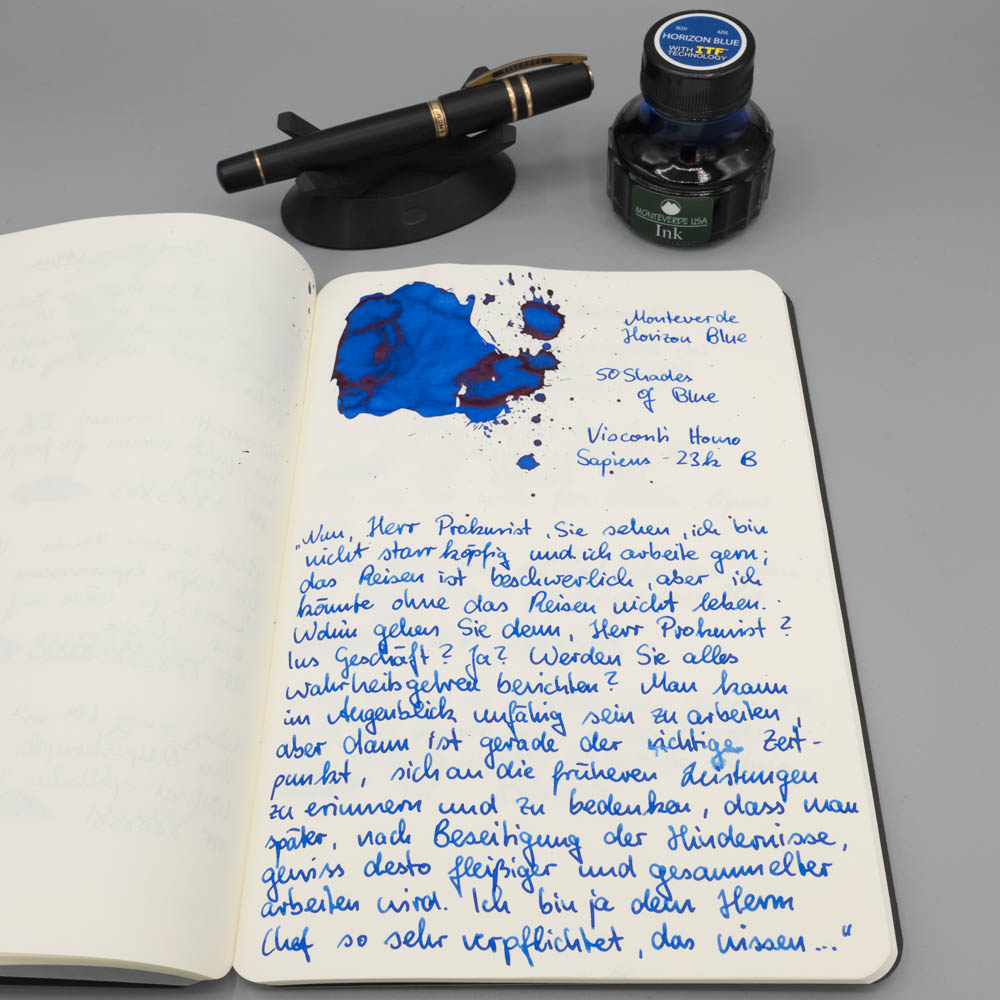 VISCONTI
BLEU AZUL
HORIZON BLUE
WITH ITF™
TECHNOLOGY
MONTEVERDE USA
Ink
Monteverde
Horizon Blue
50 Shades
of Blue
Visconti Homo
Sapiens - 23k B
"Nun, Herr Prokurist, Sie sehen, ich bin
nicht starrköpfig und ich arbeite gern;
das Reisen ist beschwerlich, aber ich
könnte ohne das Reisen nicht leben.
Wohin gehen Sie denn, Herr Prokurist?
Ins Geschäft? Ja? Werden Sie alles
wahrheitsgetreu berichten? Man kann
im Augenblick unfähig sein zu arbeiten,
aber dann ist gerade der richtige Zeit-
punkt, sich an die früheren Leistungen
zu erinnern und zu bedenken, dass man
später, nach Beseitigung der Hindernisse,
gewiss desto fleißiger und gesammelter
arbeiten wird. Ich bin ja dem Herrn
Chef so sehr verpflichtet, das wissen..."